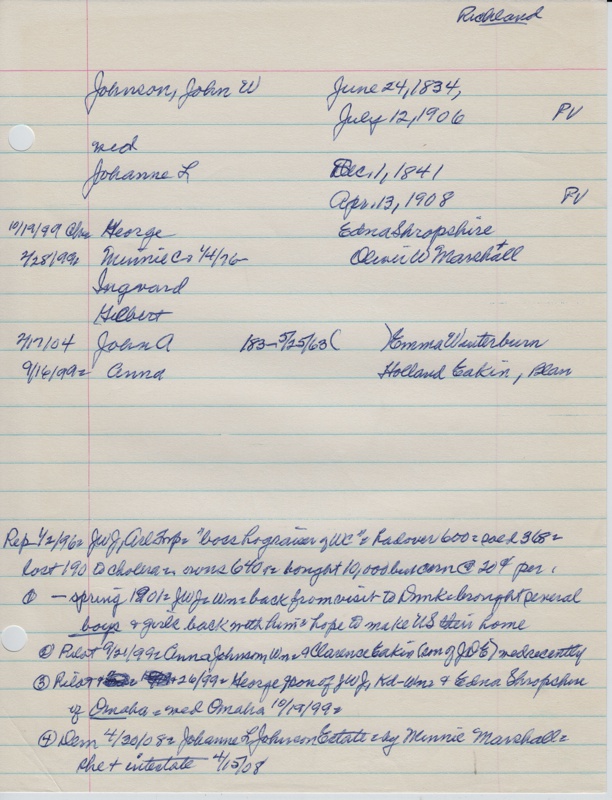 Richland
Johnson, John W June 24, 1834,
July 12, 1906 PV
med
Johanne L Dec. 1, 1841
Apr. 13, 1908 PV
10/19/99 Chn George Edna Shropshire
2/28/99 = Minnie C = 1/4/76 Oliver W Marshall
Ingvard
Hilbert
2/17/04 John A 183- 5/25/63 ( ) Emma Winterburn
9/16/99 = Anna Holland Eakin, Blan
Rep 1/2/96 = JWJ, "boss hog raiser of WC" = had over 600 = sold 368 =
lost 190 to cholera = owns 640 = bought 10,000 bu corn @ 20¢ per.
① - spring 1901 = JWJ = Wm = back from visit to Dmk = brought several
boys & girls back with him = hope to make US their home
② Pilot 9/21/99 = Anna Johnson Wm = & Clarence Eakin (son of J D E) med recently
③ Pilot 26/99 = George son of JWJ, Kd-Wm = & Edna Shropshire
of Omaha = med Omaha 10/19/99 =
④ Dem 4/30/08 = Johanne L Johnson Estate = by Minnie Marshall =
she + intestate 4/15/08